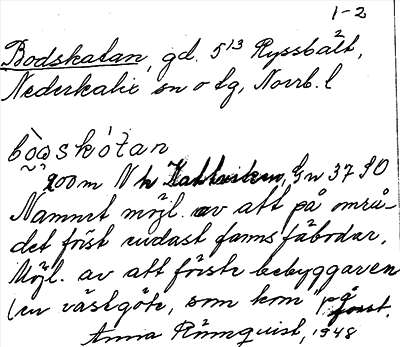 1-2
Bodskatan, gd. 5¹³ Ryssbält,
Nederkalix sn o tg, Norrb. l
bòdskátan
200 m N h Kattviken, Gn 37 SO
Namnet möjl. av att på områ-
det först endast fanns fäbodar.
Möjl. av att förste bebyggaren
(en västgöte, som kom på
Anna Rönnquist, 1948